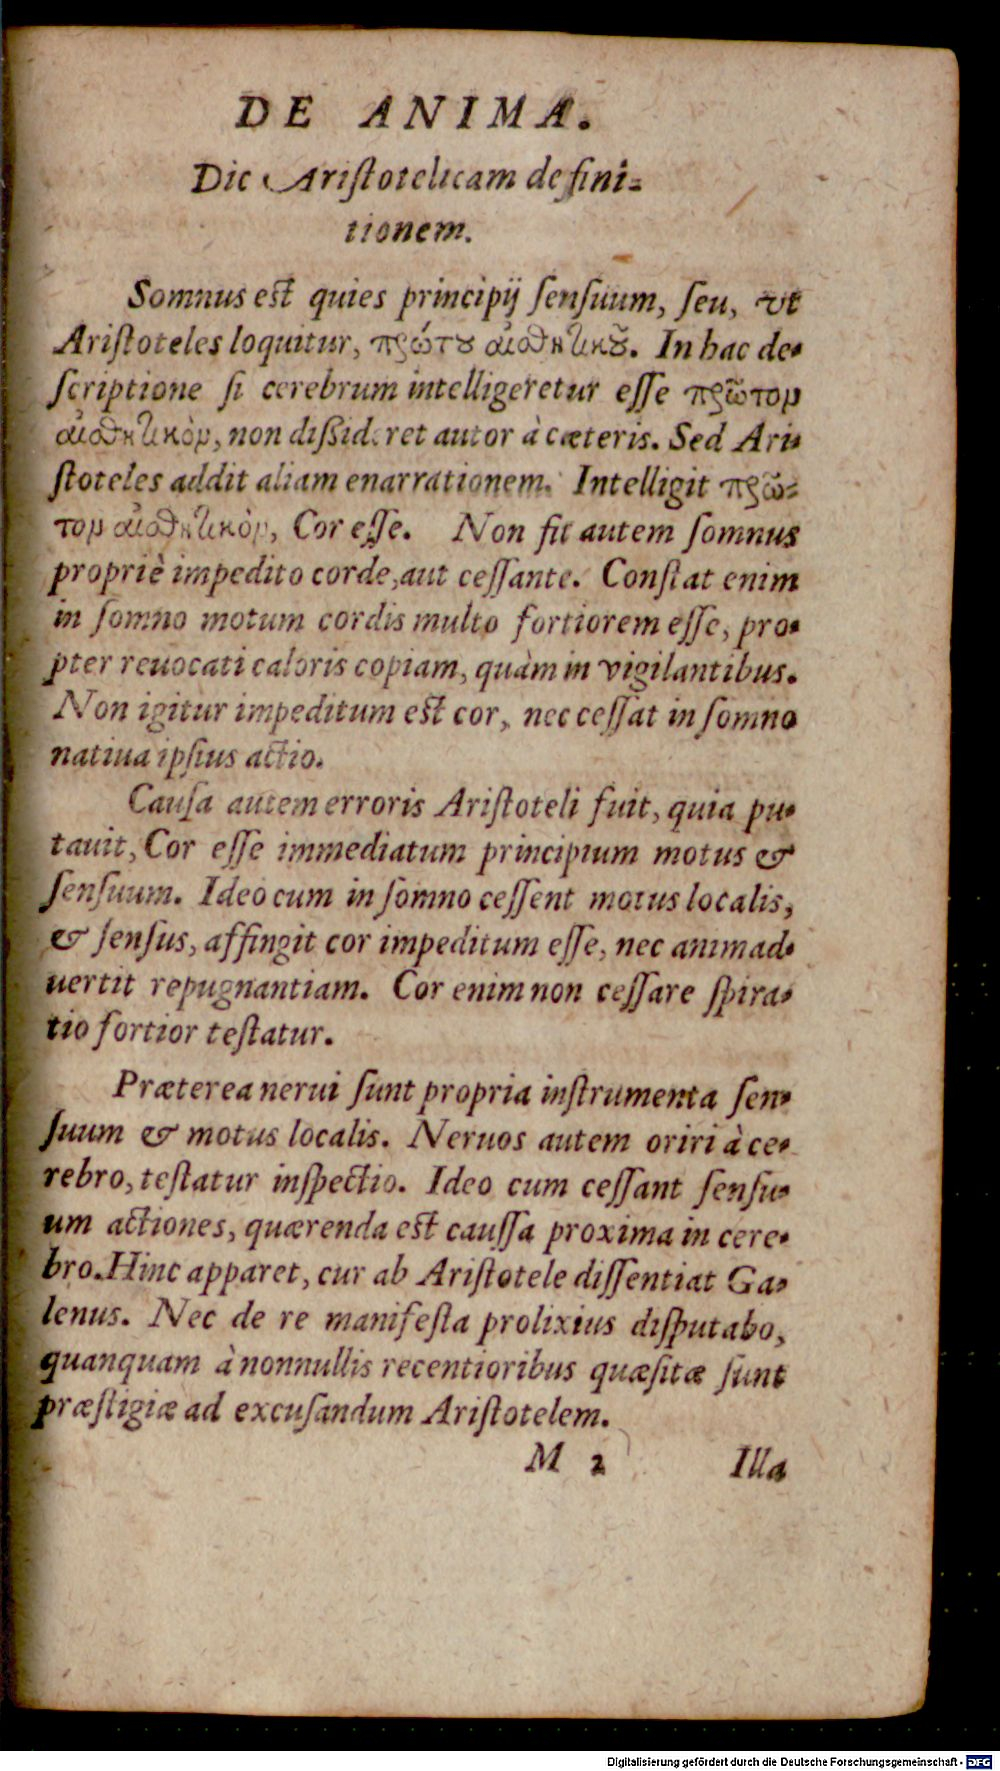 DE ANIMA.
Dic Aristotelicam defini-
tionem.
Somnus est quies principij sensuum, seu, vt
Aristoteles loquitur, πρώτου αἰσθητικοῦ. In hac de-
scriptione si cerebrum intelligeretur esse πρῶτον
αἰσθητικὸν, non dißideret autor à cæteris. Sed Ari-
stoteles addit aliam enarrationem. Intelligit πρῶ-
τον αἰσθητικὸν, Cor esse. Non fit autem somnus
propriè impedito corde, aut cessante. Constat enim
in somno motum cordis multo fortiorem esse, pro-
pter reuocati caloris copiam, quàm in vigilantibus.
Non igitur impeditum est cor, nec cessat in somno
natiua ipsius actio.
Causa autem erroris Aristoteli fuit, quia pu-
tauit, Cor esse immediatum principium motus &
sensuum. Ideo cum in somno cessent motus localis,
& sensus, affingit cor impeditum esse, nec animad-
uertit repugnantiam. Cor enim non cessare spira-
tio fortior testatur.
Præterea nerui sunt propria instrumenta sen-
suum & motus localis. Neruos autem oriri à ce-
rebro, testatur inspectio. Ideo cum cessant sensu-
um actiones, quærenda est caussa proxima in cere-
bro. Hinc apparet, cur ab Aristotele dissentiat Ga-
lenus. Nec de re manifesta prolixius disputabo,
quanquam à nonnullis recentioribus quæsitæ sunt
præstigiæ ad excusandum Aristotelem.
M 2 Illa
Digitalisierung gefördert durch die Deutsche Forschungsgemeinschaft - DFG